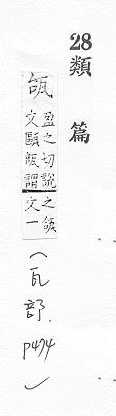 28類篇
瓵
盈之切說
文甌瓿謂
之瓵
文一
(瓦部. p474 ✓